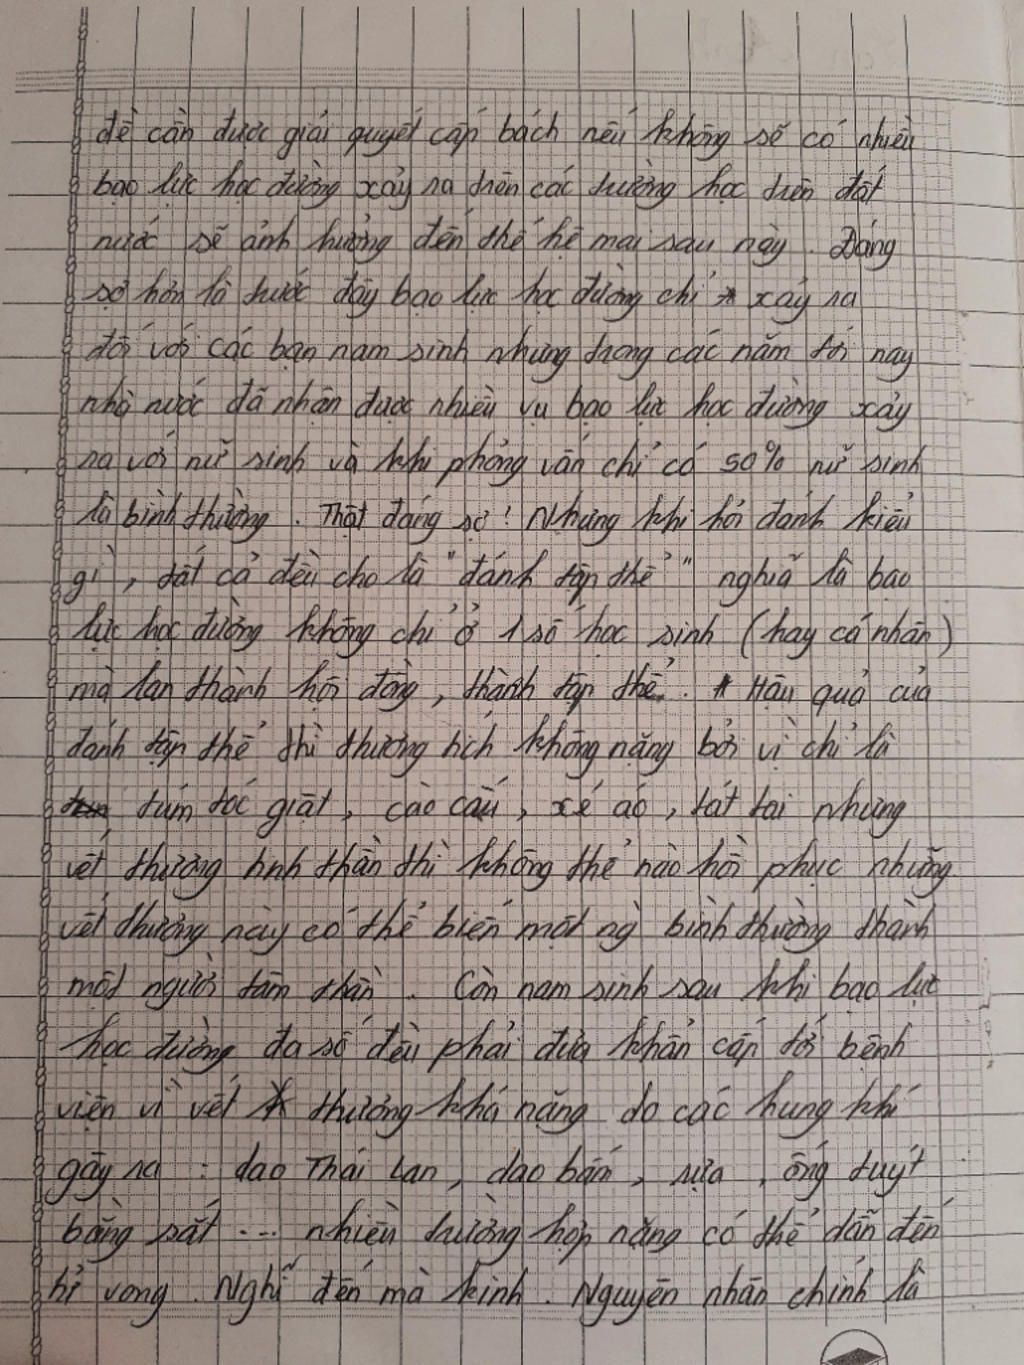 đề cần được giải quyết cấp bách nếu không sẽ có nhiều
bạo lực học đường xảy ra trên các trường học trên đất
nước sẽ ảnh hưởng đến thế hệ mai sau này. Đáng
sợ hơn là trước đây bạo lực học đường chỉ xảy ra
đối với các bạn nam sinh nhưng trong các năm tới nay
nhà nước đã nhận được nhiều vụ bạo lực học đường xảy
ra với nữ sinh và khi phỏng vấn chỉ có 50% nữ sinh
là bình thường. Thật đáng sợ! Nhưng khi hỏi đánh kiểu
gì, tất cả đều cho là "đánh tập thể" nghĩa là bạo
lực học đường không chỉ ở 1 số học sinh (hay cá nhân)
mà lan thành hội đồng, thành tập thể. Hậu quả của
đánh tập thể thì thương tích không nặng bởi vì chỉ là
túm tóc giật, cào cấu, xé áo, tát tai nhưng
vết thương tinh thần thì không thể nào hồi phục những
vết thương này có thể biến một ng̀ bình thường thành
một người tâm thần. Còn nam sinh sau khi bạo lực
học đường đa số đều phải đưa khẩn cấp tới bệnh
viện vì vết thương khá nặng do các hung khí
gây ra: dao Thái Lan, dao bấm, rựa, ống tuýt
bằng sắt... nhiều trường hợp nặng có thể dẫn đến
tử vong. Nghĩ đến mà kinh. Nguyên nhân chính là